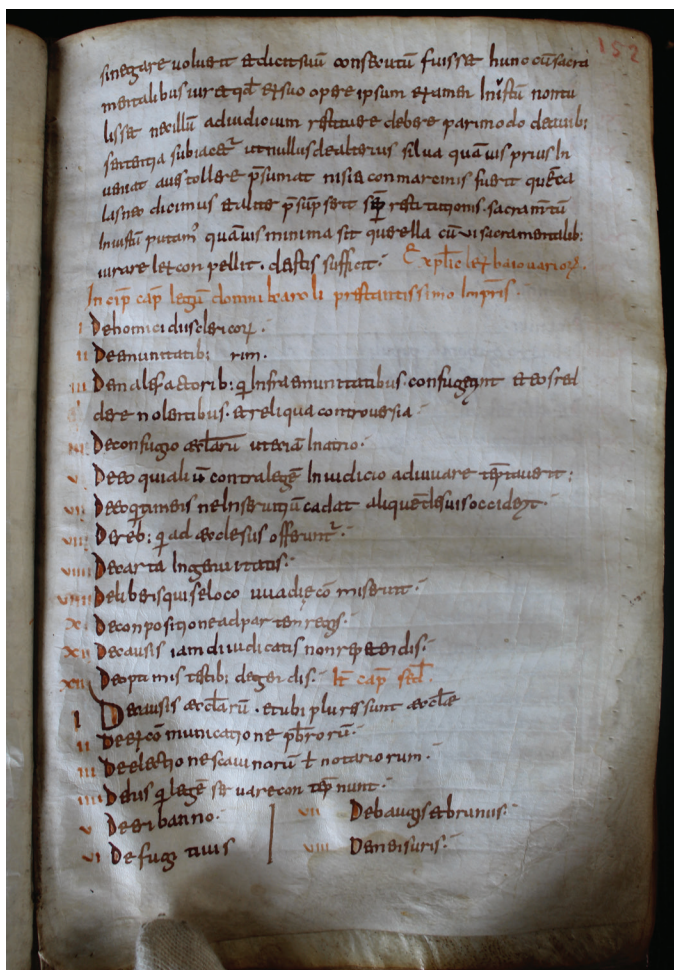 152
sinegare voluerit et dicit suū consecutum fuisset hunc cū sacra
mentalibus iuret qđ ex suo opere ipsum examen Iniustū nontu
lisset nec illū adiudicium restituere debere parimodo deapib;
sententia subiaceat ut nullus de alterius silva quāvis prius In
veniat aves tollere p̄sumat nisi econmarcanus fuerit quē ca
lasneo dicimus et aliter p̄sūpserit restitutionis. sacram̄tū
Iniustū putam' quāvis minima sit querella cū vi sacramentalib;
iurare lex conpellit. deistis sufficit. Explic̄ lex baiouuarioꝝ.
Incip̄ cap̄ legū domni karoli prestantissimo Imp̄ris.
I Dehomicidiis clericoꝝ.
II De emunitatib; rim.
III De malefactorib; qi Infra emunitatibus. confugerunt et eos red
dere nolentibus. et reliqua controversia.
IIII De confugio ecclaꝝ ut etiā In atrio.
V De eo qui aliū contra legē In iudicio adiuvare temptaverit:
VI De eo qi timens ne In servitiū cadat aliquē de suis occiderit.
VII De reb; qi ad ecclesiis offeruntᷣ.
VIII De carta Ingenuitatis.
VIIII De liberis qui se loco vvadie cōmiserit.
X De conpositione ad partem regis.
XI De causis iam diiudicatis non repetendis.
XII De optimis testib; degendis. It̄ cap̄ scd̄.
I De causis ecclarū. et ubi plures sunt ecclæ
II De excōmunicatione pb̄rorū.
III De electione scavinorū ł notariorum.
IIII De his qi legē servare contēpnunt.
V De eribanno. VII De baugis et brunns.
VI De fugitivis VIII De mensuris.